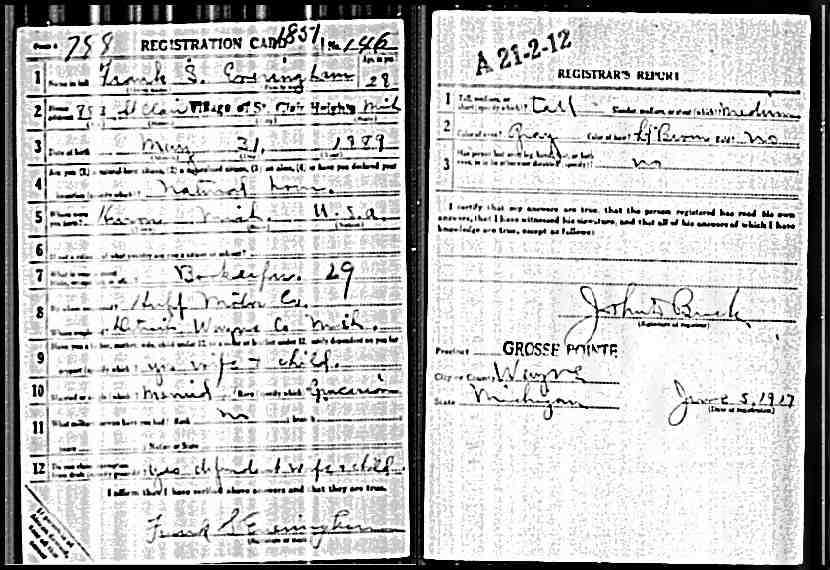 Form 1 758 REGISTRATION CARD 6851 No. 146
1 Name in full Frank S. Everingham Age, in yrs 28
2 Home address 853 St Clair Village of St. Clair Heights Mich
3 Date of birth May 31, 1889
4 Are you (1) a natural-born citizen, (2) a naturalized citizen, (3) an alien, (4) or have you declared your
intention (specify which)? Natural born.
5 Where were you born? Mich. U.S.A.
6 If not a citizen, of what country are you a citizen or subject?
7 What is your present Bookkeeper. 29
8 By whom employed? Huff Motor Co.
Where employed? Detroit Wayne Co Mich.
9 Have you a father, mother, wife, child under 12, or a sister or brother under 12, solely dependent on you for
support (specify which)? yes wife + child.
10 Married or single (which)? Married Race (specify which)? Caucasian
11 What military service have you had? Rank no branch
years Nation or State
12 Do you claim exemption from draft (specify grounds)? Yes dependent wife + child.
I affirm that I have verified above answers and that they are true.
Frank S Everingham
A 21-2-12
REGISTRAR'S REPORT
1 Tall, medium, or short (specify which)? tall Slender, medium, or stout (which)? Medium
2 Color of eyes? Gray Color of hair? Lt Brown Bald? No
3 Has person lost arm, leg, hand, foot, or both
eyes, or is he otherwise disabled (specify)? no
I certify that my answers are true, that the person registered has read his own
answers, that I have witnessed his signature, and that all of his answers of which I have
knowledge are true, except as follows:
John D Buck
(Signature of registrar)
Precinct GROSSE POINTE
City or County Wayne
State Michigan June 5, 1917
(Date of registration)